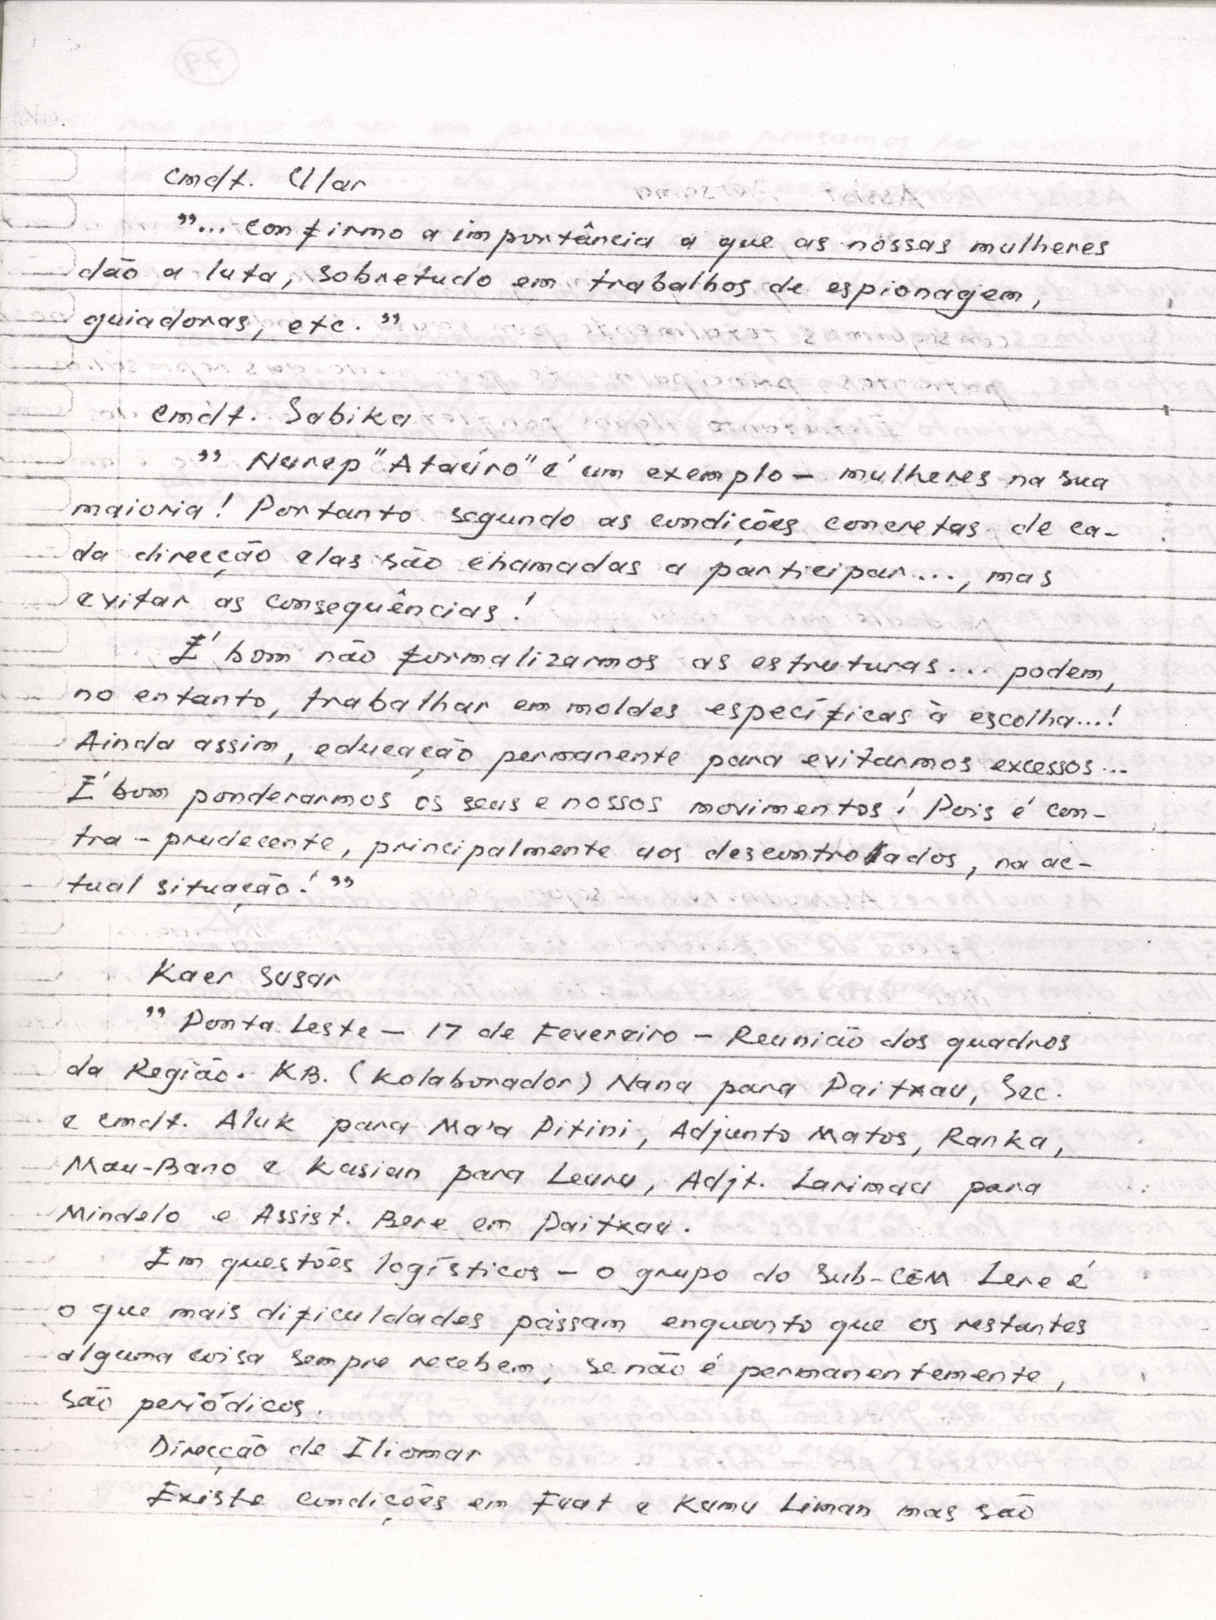 Cmdt. Ular
"... confirmo a importância a que as nossas mulheres
dão a luta, sobretudo em trabalhos de espionagem,
guiadoras, etc."
Cmdt. Sabika
" Nurep "Ataúro" é um exemplo - mulheres na sua
maioria! Portanto segundo as condições concretas de ca-
da direcção elas são chamadas a participar..., mas
evitar as consequências!
É bom não formalizarmos as estruturas... podem,
no entanto, trabalhar em moldes específicas à escolha...!
Ainda assim, educação permanente para evitarmos excessos...
É bom ponderarmos os seus e nossos movimentos! Pois é con-
tra - prudecente, principalmente aos descontrolados, na ac-
tual situação!"
Kaer Susar
" Ponta Leste - 17 de Fevereiro - Reunião dos quadros
da Região. KB. (Kolaborador) Nana para Paitxau, Sec.
e cmdt. Aluk para Ma'a Pitini, Adjunto Matos, Ranka,
Mau-Bano e Kasian para Leuru, Adjt. Larimau para
Mindelo e Assist. Bere em Paitxau.
Em questões logísticos - o grupo do Sub-CEM Lere é
o que mais dificuldades passam enquanto que os restantes
alguma coisa sempre recebem, se não é permanentemente,
são periódicos.
Direcção de Iliomar
Existe condições em Fuat e Kumu Liman mas são